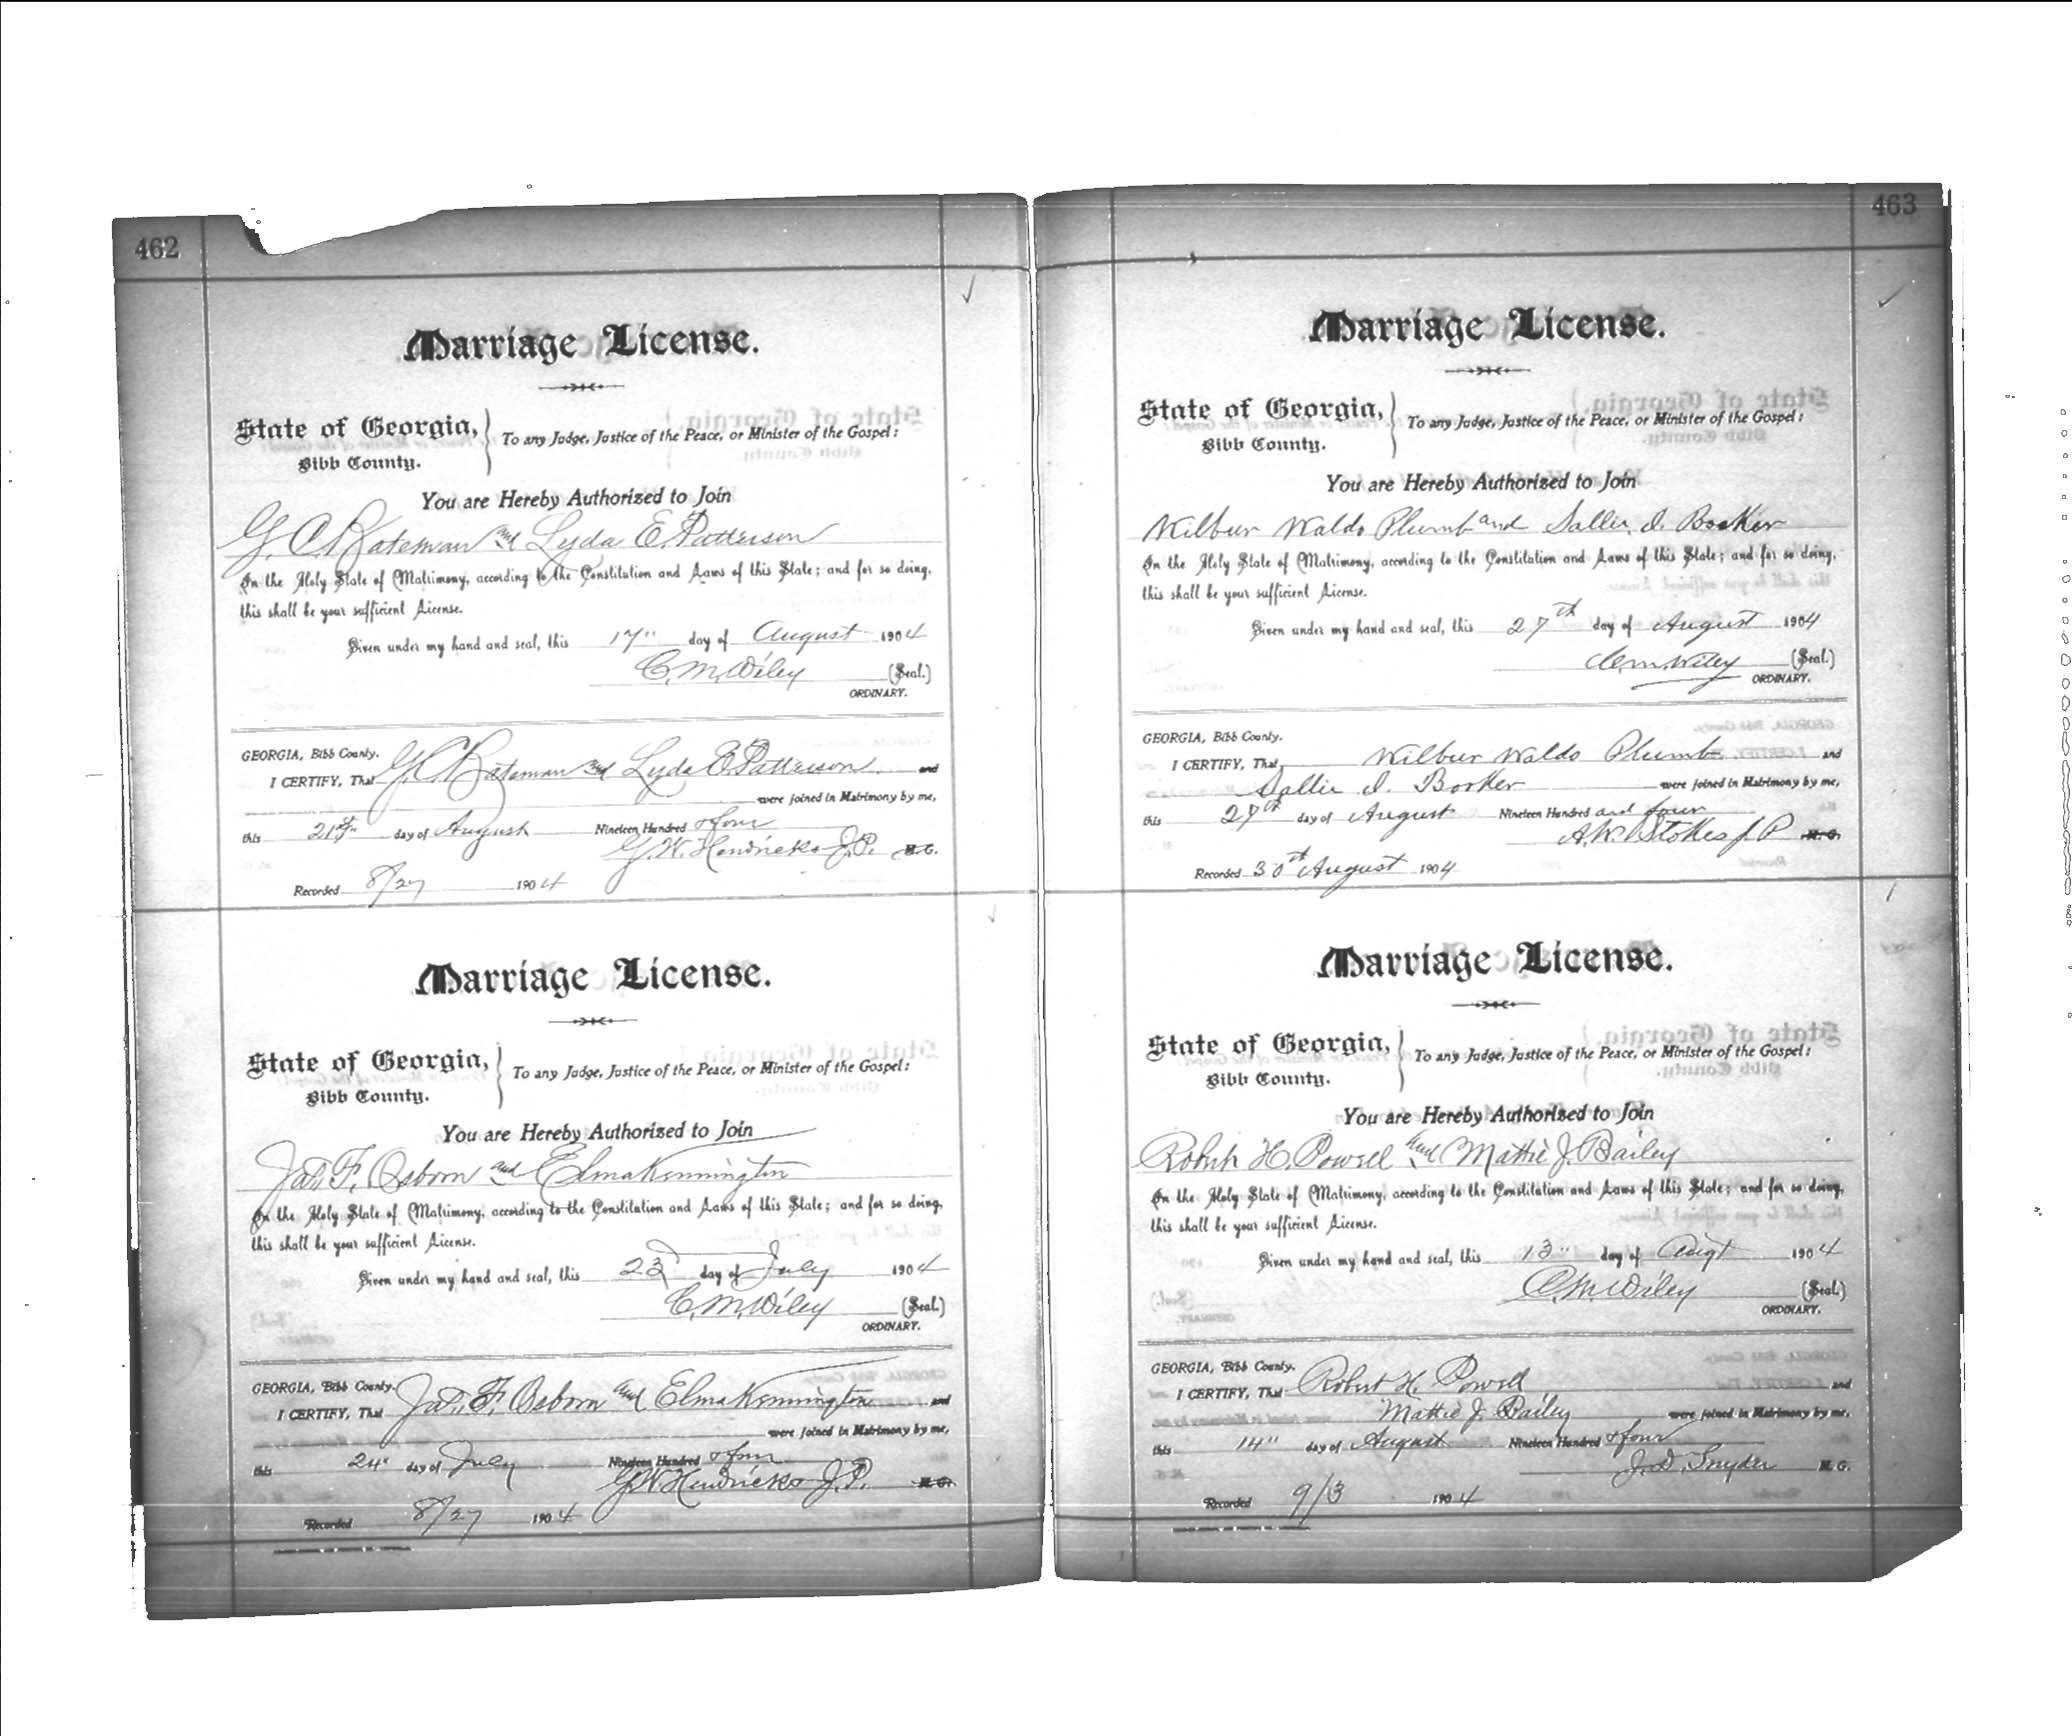 462
Marriage License.
State of Georgia,
Bibb County.
To any Judge, Justice of the Peace, or Minister of the Gospel:
You are Hereby Authorized to Join
G. C. Bateman and Lyda E. Patterson
In the Holy State of Matrimony, according to the Constitution and Laws of this State; and for so doing,
this shall be your sufficient License.
Given under my hand and seal, this 17" day of August 1904
C. M. Wiley (Seal.)
ORDINARY.
GEORGIA, Bibb County.
I CERTIFY, That G. C. Bateman and Lyda E Patterson and
were joined in Matrimony by me,
this 21st" day of August Nineteen Hundred & four
G. W. Hendricks J.P. M. G.
Recorded 8/27 1904
Marriage License.
State of Georgia,
Bibb County.
To any Judge, Justice of the Peace, or Minister of the Gospel:
You are Hereby Authorized to Join
Jas. F. Osborn and Elma Kennington
In the Holy State of Matrimony, according to the Constitution and Laws of this State; and for so doing,
this shall be your sufficient License.
Given under my hand and seal, this 23 day of July 1904
C. M. Wiley (Seal.)
ORDINARY.
GEORGIA, Bibb County.
I CERTIFY, That Jas. F. Osborn and Elma Kennington and
were joined in Matrimony by me,
this 24" day of July Nineteen Hundred & four
G W Hendricks J.P. M. G.
Recorded 8/27 1904
463
Marriage License.
State of Georgia,
Bibb County.
To any Judge, Justice of the Peace, or Minister of the Gospel:
You are Hereby Authorized to Join
Wilbur Waldo Plumb and Sallie I. Booker
In the Holy State of Matrimony, according to the Constitution and Laws of this State; and for so doing,
this shall be your sufficient License.
Given under my hand and seal, this 27th day of August 1904
C. M. Wiley (Seal.)
ORDINARY.
GEORGIA, Bibb County.
I CERTIFY, That Wilbur Waldo Plumb and
Sallie I. Booker were joined in Matrimony by me,
this 27th day of August Nineteen Hundred and four
A. W. Stokes J. P. M. G.
Recorded 30th August 1904
Marriage License.
State of Georgia,
Bibb County.
To any Judge, Justice of the Peace, or Minister of the Gospel:
You are Hereby Authorized to Join
Robert H. Powell and Mattie J. Bailey
In the Holy State of Matrimony, according to the Constitution and Laws of this State; and for so doing,
this shall be your sufficient License.
Given under my hand and seal, this 13" day of Augt 1904
C. M. Wiley (Seal.)
ORDINARY.
GEORGIA, Bibb County.
I CERTIFY, That Robert H. Powell and
Mattie J. Bailey were joined in Matrimony by me,
this 14" day of August Nineteen Hundred & four
J. D. Snyder M. G.
Recorded 9/3 1904